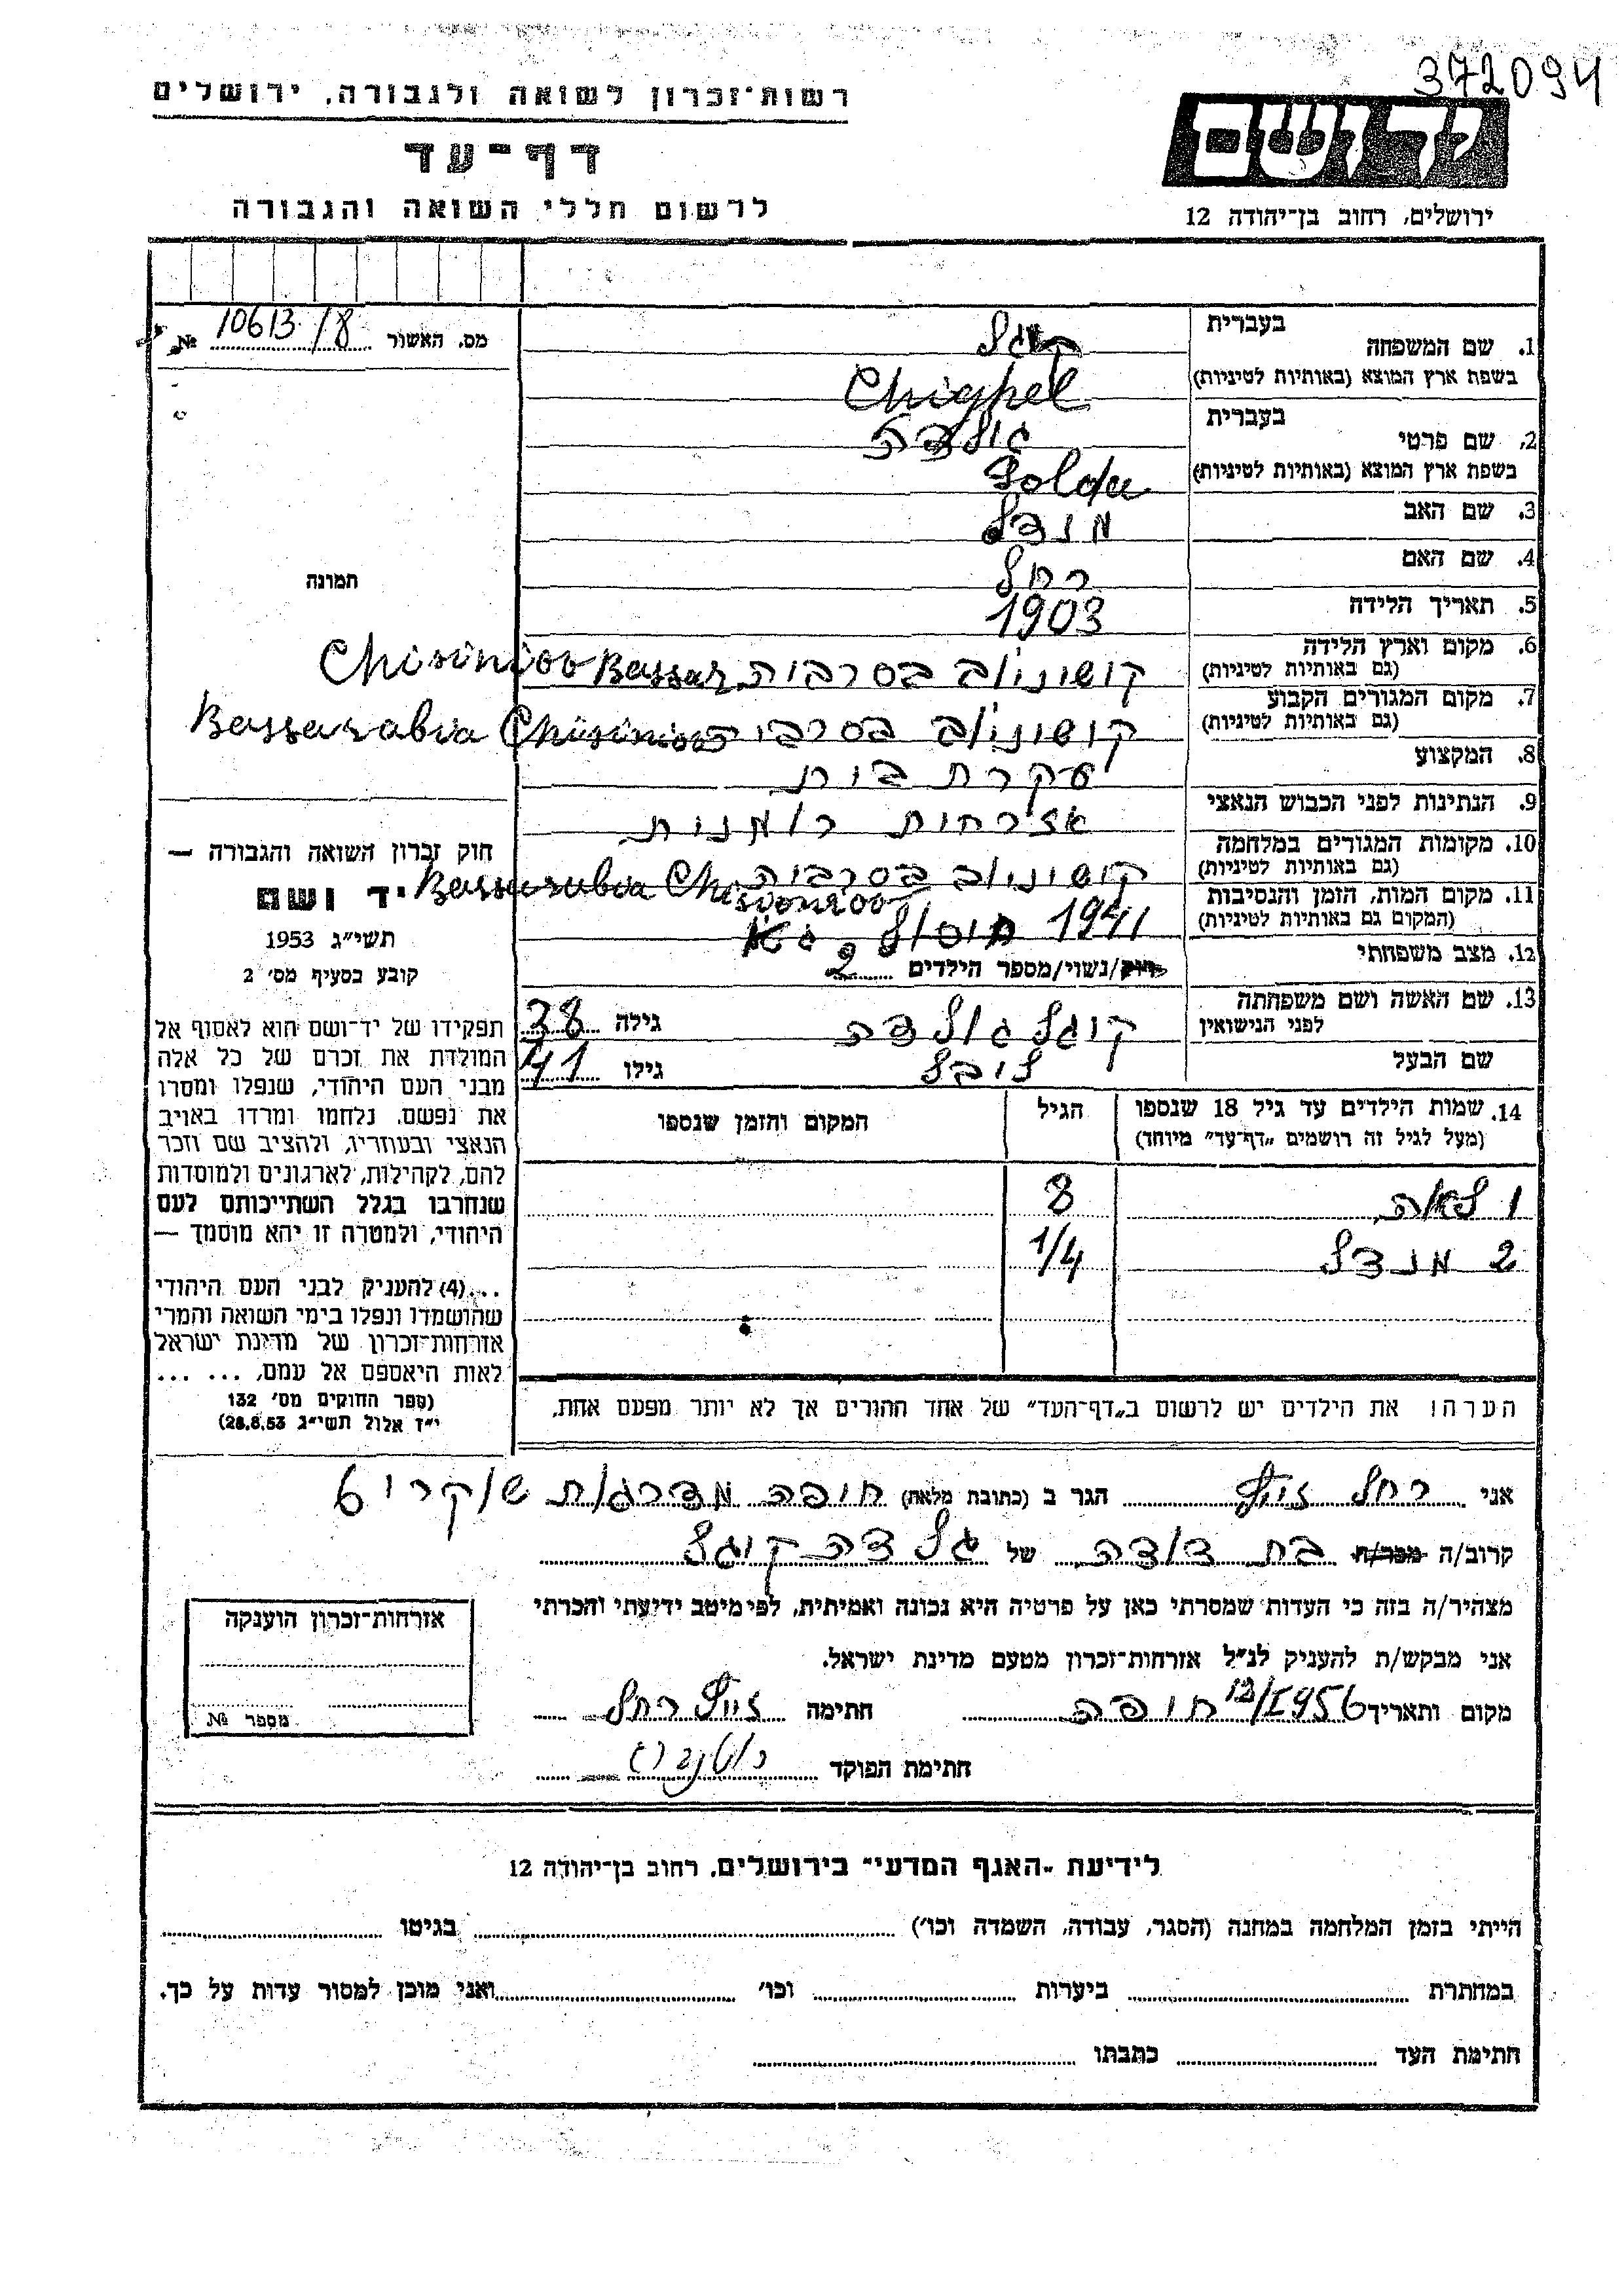 372094
רשות־זכרון לשואה ולגבורה, ירושלים
יד ושם
דף־עד
לרשום חללי השואה והגבורה
ירושלים, רחוב בן־יהודה 12
מס. האשור 10613/8 №
בעברית
1. שם המשפחה קיגל
בשפת ארץ המוצא (באותיות לטיניות) Chighel
בעברית
2. שם פרטי גולדה
בשפת ארץ המוצא (באותיות לטיניות) Golda
3. שם האב מנדל
4. שם האם רחל
תמונה
5. תאריך הלידה 1903
6. מקום וארץ הלידה קושיניוב בסרביה Bassar Chisiniov
(גם באותיות לטיניות)
7. מקום המגורים הקבוע קושיניוב בסרביה Chisiniov Bassarabia
(גם באותיות לטיניות)
8. המקצוע עקרת בית
9. הנתינות לפני הכבוש הנאצי אזרחות רומנית
10. מקומות המגורים במלחמה קושיניוב בסרביה Bassarabia
(גם באותיות לטיניות)
11. מקום המות, הזמן והנסיבות 1941
(המקום גם באותיות לטיניות)
12. מצב משפחתי רוק/נשוי/מספר הילדים 2
13. שם האשה ושם משפחתה קיגל גולדה גילה 38
לפני הנישואין
שם הבעל ליבל גילו 41
14. שמות הילדים עד גיל 18 שנספו הגיל המקום והזמן שנספו
(מעל לגיל זה רושמים „דף־עד" מיוחד)
1 לאה 8
2 מנדל 1/4
חוק זכרון השואה והגבורה —
יד ושם
תשי״ג 1953
קובע בסעיף מס׳ 2
תפקידו של יד־ושם הוא לאסוף אל
המולדת את זכרם של כל אלה
מבני העם היהודי, שנפלו ומסרו
את נפשם, נלחמו ומרדו באויב
הנאצי ובעוזריו, ולהציב שם וזכר
להם, לקהילות, לארגונים ולמוסדות
שנחרבו בגלל השתייכותם לעם
היהודי, ולמטרה זו יהא מוסמך —
...(4) להעניק לבני העם היהודי
שהושמדו ונפלו בימי השואה והמרי
אזרחות־זכרון של מדינת ישראל
לאות היאספם אל עמם, ... ...
(ספר החוקים מס׳ 132
י״ז אלול תשי״ג 28.8.53)
הערה: את הילדים יש לרשום ב„דף־העד" של אחד ההורים אך לא יותר מפעם אחת.
אני רחל זייף הגר ב (כתובת מלאה) חיפה מדרגות שוקרי 6
קרוב/ה מכר/ה בת דודה של גלדה קיגל
מצהיר/ה בזה כי העדות שמסרתי כאן על פרטיה היא נכונה ואמיתית, לפי מיטב ידיעתי והכרתי
אני מבקש/ת להעניק לנ״ל אזרחות־זכרון מטעם מדינת ישראל.
מקום ותאריך 12/I 1956 חיפה חתימה זייף רחל
חתימת הפוקד
אזרחות־זכרון הוענקה
מספר №
לידיעת „האגף המדעי" בירושלים, רחוב בן־יהודה 12
הייתי בזמן המלחמה במחנה (הסגר, עבודה, השמדה וכו׳) בגיטו
במחתרת ביערות וכו׳ ואני מוכן למסור עדות על כך.
חתימת העד כתבתו